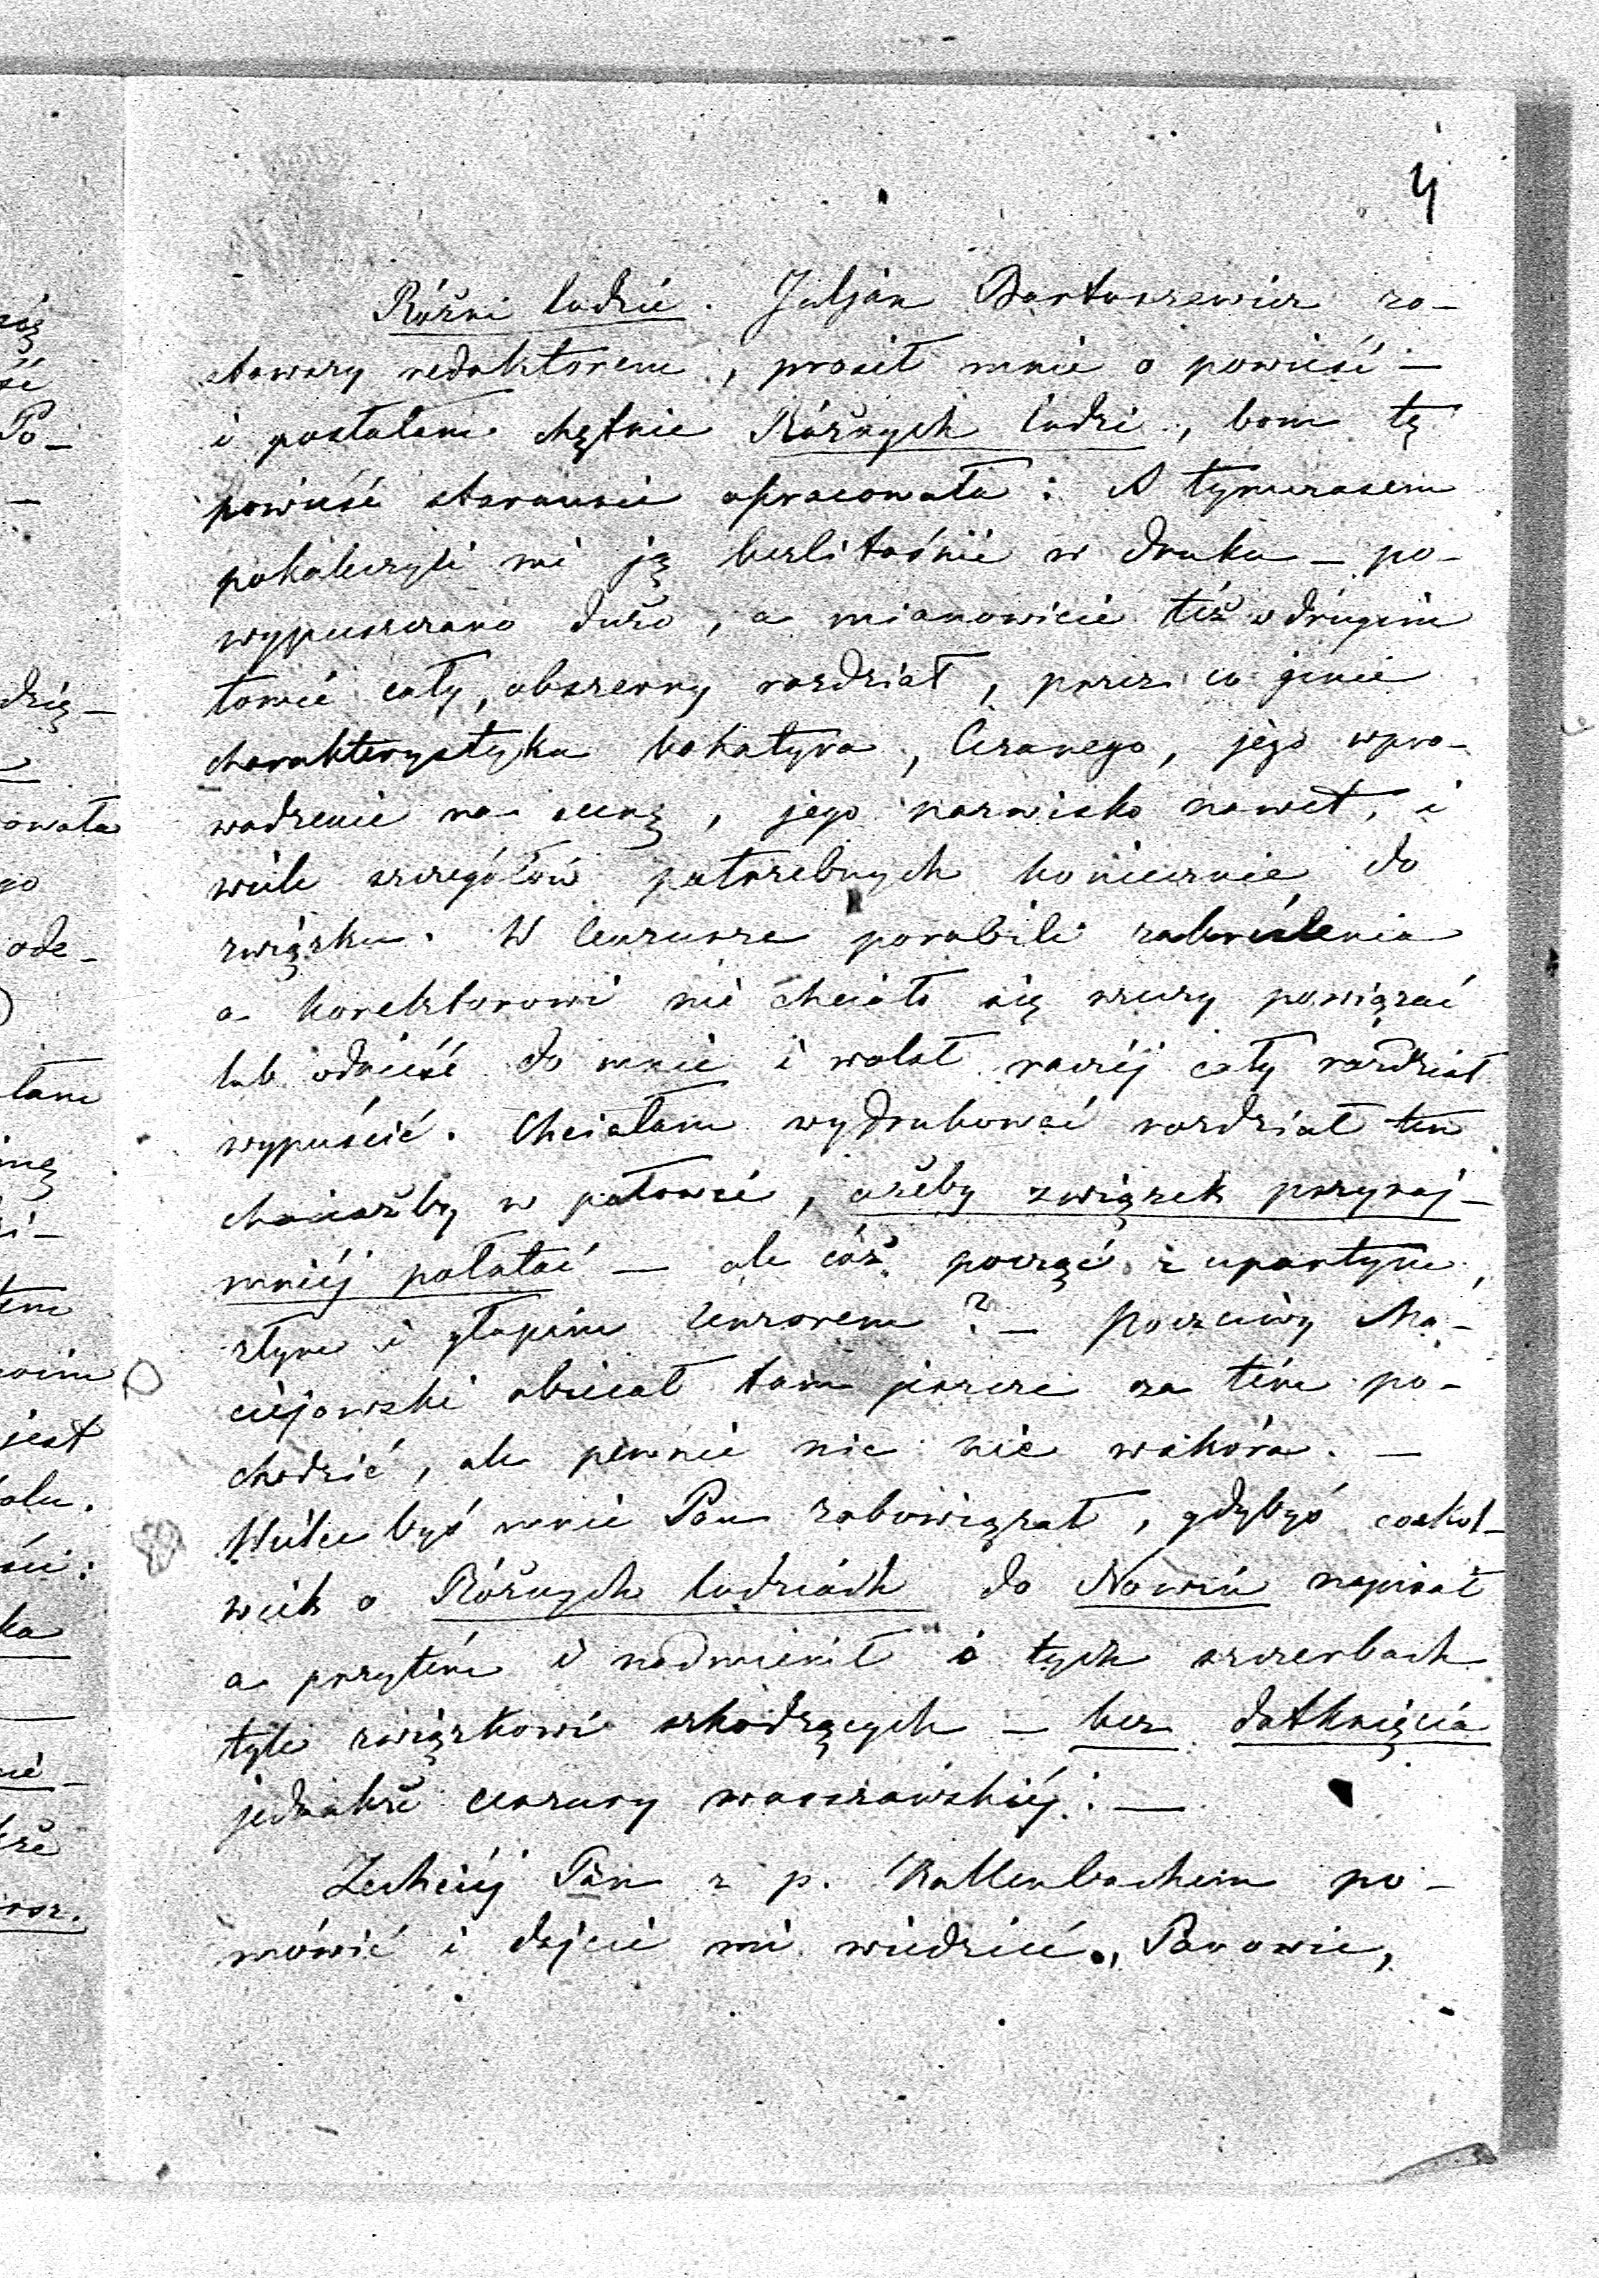 4
Różni ludzie. Juljan Bartoszewicz zo-
stawszy redaktorem, prosił mnie o powieść —
i posłałam chętnie Różnych ludzi, bom tę
powieść starannie opracowała: A tymczasem
pokaleczyli mi ją bezlitośnie w druku — po-
wypuszczano dużo, a mianowicie też w drugim
tomie cały, obszerny rozdział, przez co ginie
charakterystyka bohatyra, Czarnego, jego wpro-
wadzenie na scenę, jego nazwisko nawet, i
wiele szczegółów potrzebnych koniecznie do
związku. W Cenzurze porobili zakreślenia
a korektorowi nie chciało się rzeczy powiązać
lub odnieść do mnie i wolał raczéj cały rozdział
wypuścić. Chciałam wydrukować rozdział ten
chociażby w połowie, ażeby związek przynaj-
mniéj połatać — ale cóż począć z upartym,
złym i głupim cenzorem? — Poczciwy Ma-
ciejowski obiecał tam jeszcze za tém po-
chodzić, ale pewnie nic nie wskóra. —
Wielce byś mnie Pan zobowiązał, gdybyś cośkol-
wiek o Różnych ludziach do Nowin napisał
a przytém i nadmienił o tych szczerbach
tyle związkowi szkodzących — bez dotknięcia
jednakże cenzury warszawskiéj. —
Zechciéj Pan z p. Kallenbachem po-
mówić i dajcie mi wiedzieć, Panowie,